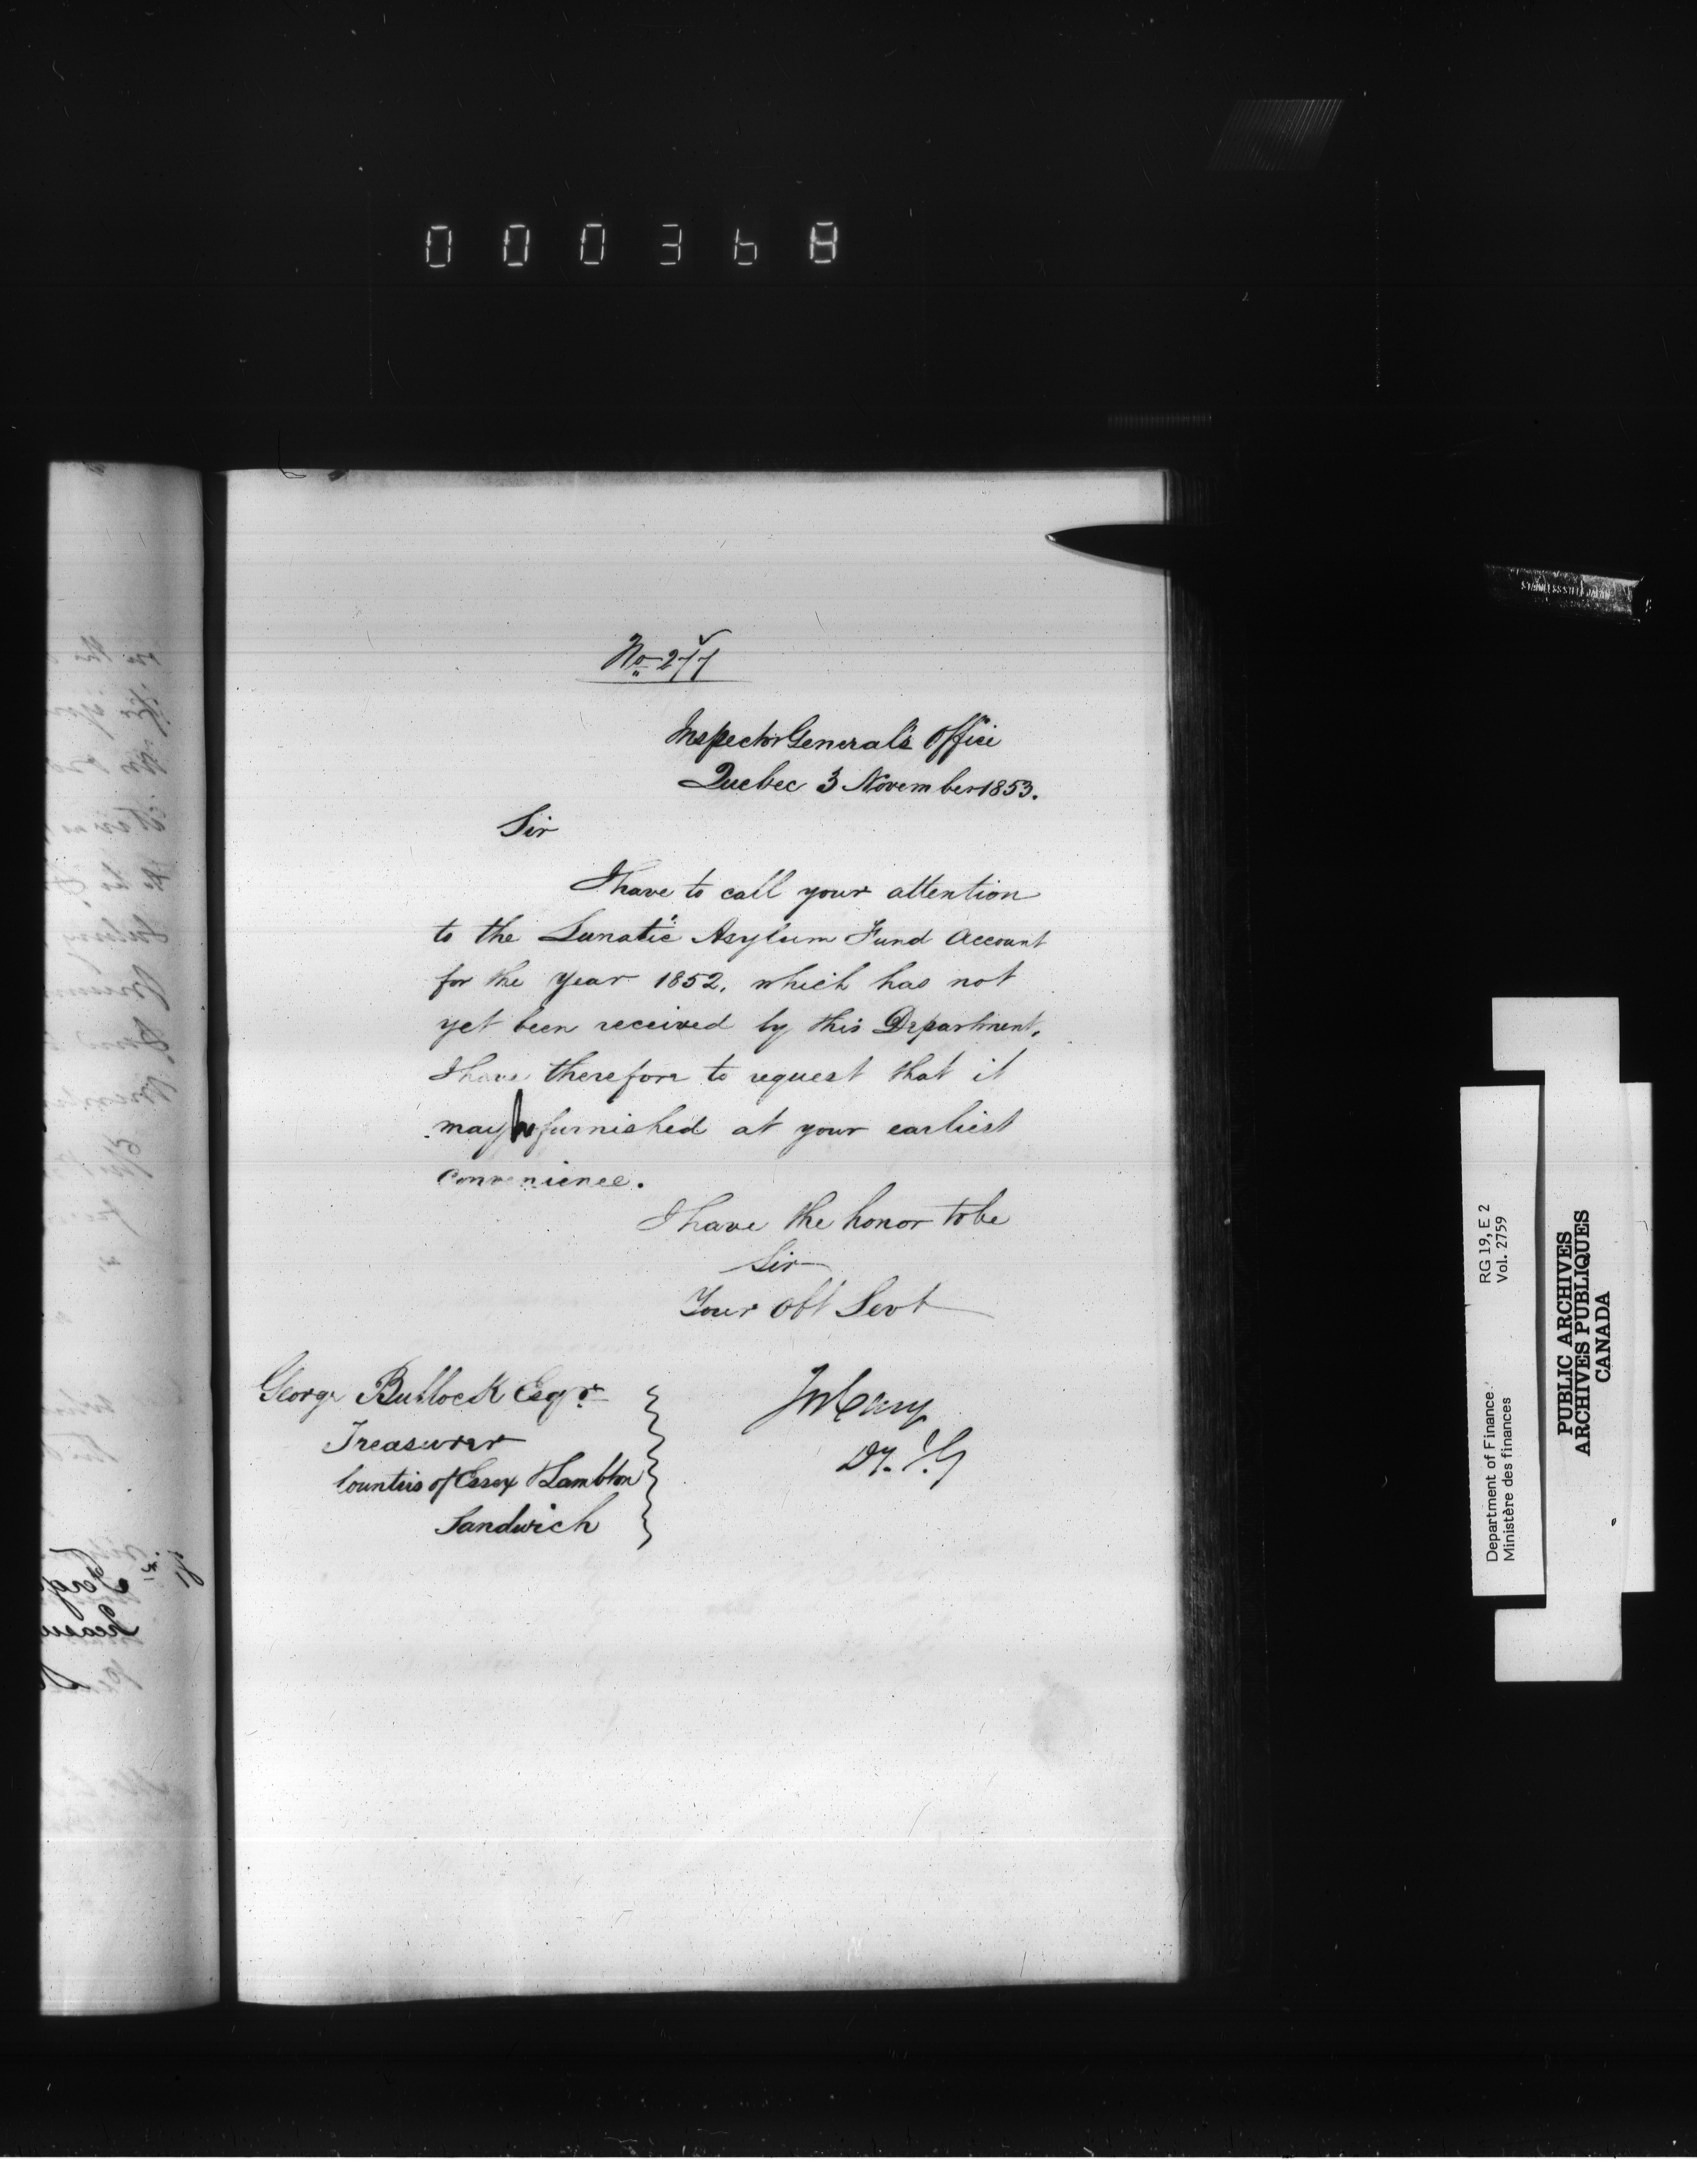 000368
No. 277
Inspector General's Office
Quebec 3 November 1853.
Sir
I have to call your attention
to the Lunatic Asylum Fund Account
for the Year 1852, which has not
yet been received by this Department,
I have therefore to request that it
may be furnished at your earliest
convenience.
I have the honor to be
Sir
Your Obt Servt
George Bullock Esqr
Treasurer
Counties of Essex & Lambton
Sandwich
Jos Cary
Dy. I. G
STAINLESS STEEL JAPAN
RG 19, E 2
Vol. 2759
Department of Finance
Ministère des finances
PUBLIC ARCHIVES
ARCHIVES PUBLIQUES
CANADA